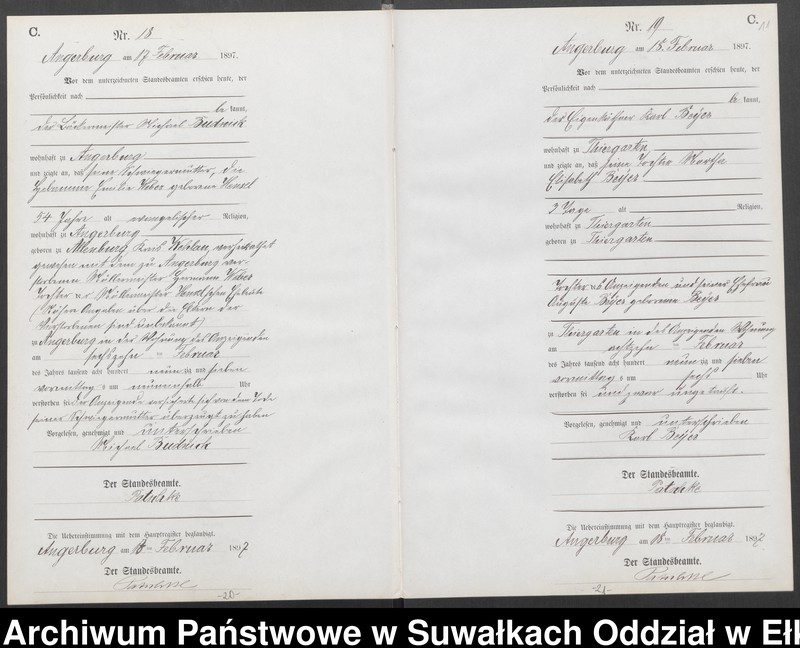 C.
Nr. 18
Angerburg am 17 Februar 1897.
Vor dem unterzeichneten Standesbeamten erschien heute, der
Persönlichkeit nach
be kannt,
der Bäckermeister Michael Budnick
wohnhaft zu Angerburg
und zeigte an, daß seine Schwiegermutter, die
Emilie Weber geborene Hensel
54 Jahre alt evangelischer Religion,
wohnhaft zu Angerburg
geboren zu Allenburg Kreis Wehlau, verheirathet
gewesen mit dem zu Angerburg ver-
storbenen Müllermeister Hermann Weber
Tochter der Müllermeister Henselschen Eheleute
(Nähere Angaben über die Eltern der
Verstorbenen sind unbekannt)
zu Angerburg in des Anzeigenden
am sechszehn ten Februar
des Jahres tausend acht hundert neun zig und sieben
vormittags um neuneinhalb Uhr
verstorben sei der Anzeigende versicherte sich von dem Tode
seiner Schwiegermutter überzeugt zu haben
Vorgelesen, genehmigt und unterschrieben
Michael Budnick
Der Standesbeamte.
Die Uebereinstimmung mit dem Hauptregister beglaubigt.
Angerburg am 18ten Februar 1897
Der Standesbeamte.
-20-
C.
Nr. 19
Angerburg am 18. Februar 1897.
Vor dem unterzeichneten Standesbeamten erschien heute, der
Persönlichkeit nach
be kannt,
der Eigenkäthner Karl Beyer
wohnhaft zu Thiergarten
und zeigte an, daß seine Tochter Martha
Elisabeth Beyer
3 Tage alt Religion,
wohnhaft zu Thiergarten
geboren zu Thiergarten
Tochter des Anzeigenden und seiner Ehefrau
Auguste Beyer geborene Beyer
zu Thiergarten in des Anzeigenden Wohnung
am achtzehn ten Februar
des Jahres tausend acht hundert neun zig und sieben
vormittags um sechs Uhr
verstorben sei und zwar ungetauft.
Vorgelesen, genehmigt und unterschrieben
Karl Beyer
Der Standesbeamte.
Die Uebereinstimmung mit dem Hauptregister beglaubigt.
Angerburg am 18ten Februar 1897
Der Standesbeamte.
-21-
Archiwum Państwowe w Suwałkach Oddział w Eł